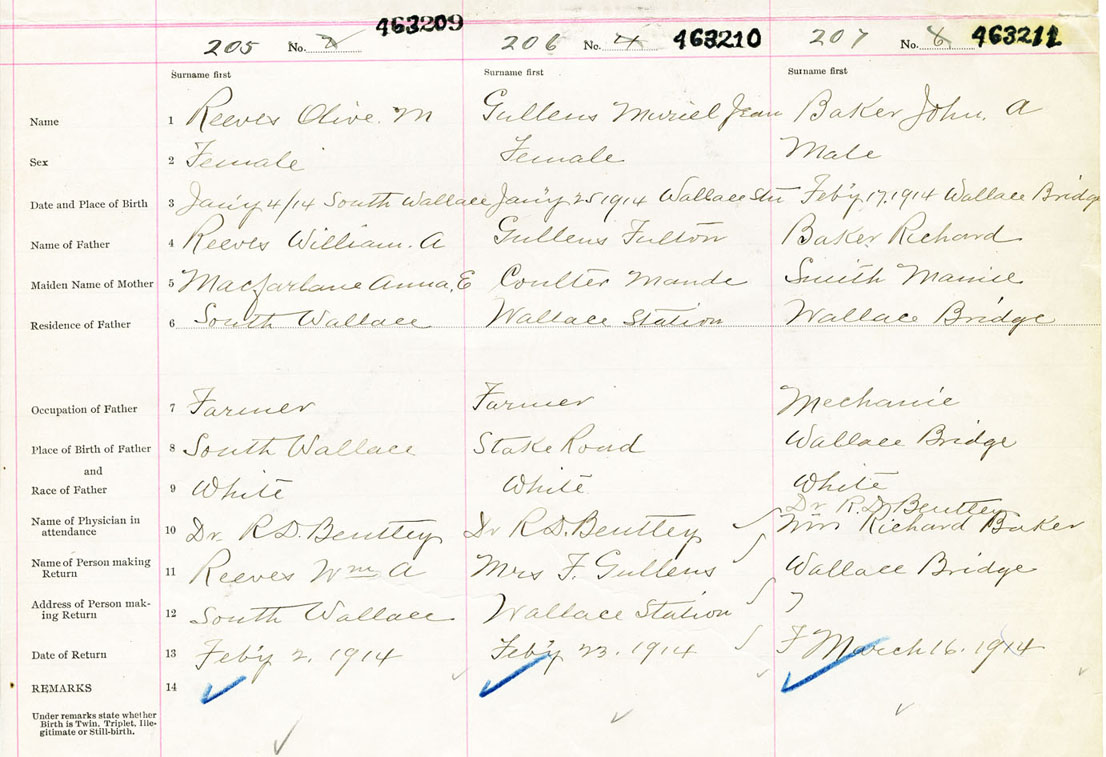 205 No. 2 463209 206 No. 4 463210 207 No. 6 463211
Surname first Surname first Surname first
Name 1 Reeves Olive. M Gullens Muriel Jean Baker John. A
Sex 2 Female Female Male
Date and Place of Birth 3 Jan'y 4/14 South Wallace Jan'y 25 1914 Wallace Stn Feb'y 17. 1914 Wallace Bridge
Name of Father 4 Reeves William. A Gullens Fulton Baker Richard
Maiden Name of Mother 5 Macfarlane Anna. E Coulter Maude Smith Mamie
Residence of Father 6 South Wallace Wallace Station Wallace Bridge
Occupation of Father 7 Farmer Farmer Mechanic
Place of Birth of Father 8 South Wallace Stake Road Wallace Bridge
and
Race of Father 9 White White White
Dr. R. D. Bentley
Name of Physician in
attendance 10 Dr. R D. Bentley Dr R D. Bentley Mrs Richard Baker
Name of Person making
Return 11 Reeves Wm A Mrs F. Gullens Wallace Bridge
Address of Person mak-
ing Return 12 South Wallace Wallace Station
Date of Return 13 Feb'y 2. 1914 Feb'y 23. 1914 March 16. 1914
REMARKS 14
Under remarks state whether
Birth is Twin, Triplet, Ille-
gitimate or Still-birth.